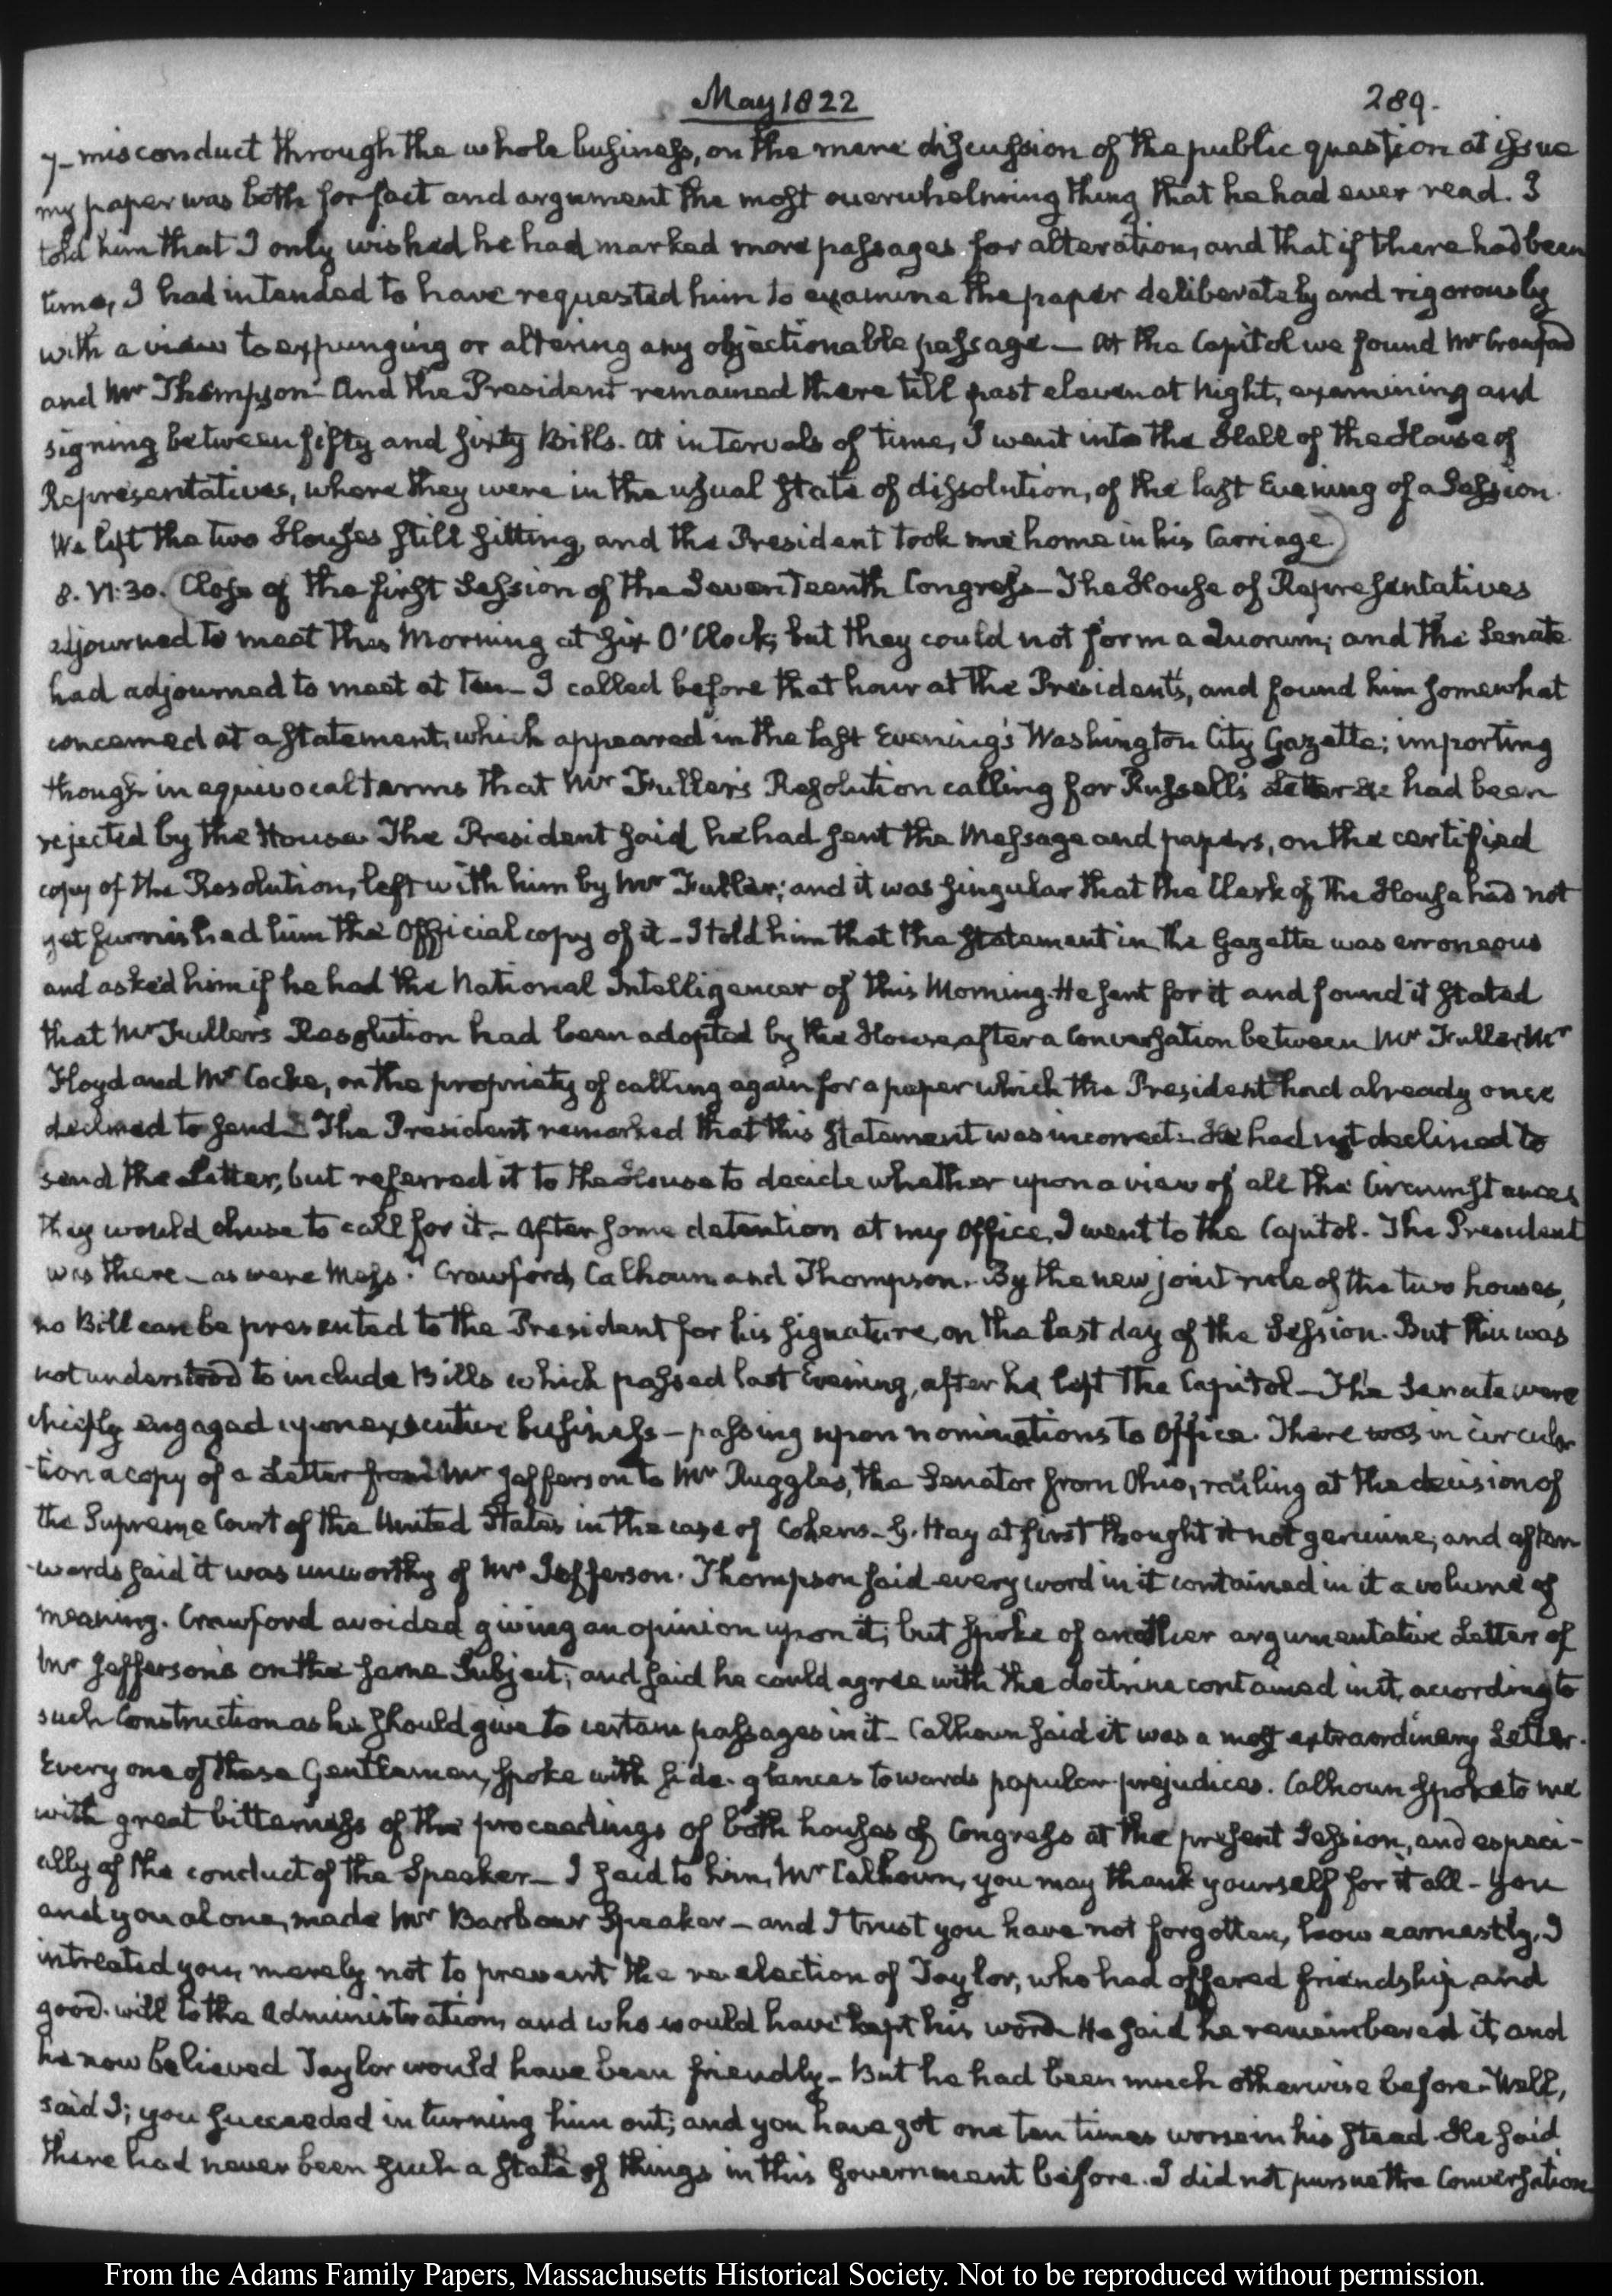 May 1822
289.
7— misconduct through the whole business, on the mere discussion of the public question at issue
my paper was both for fact and argument the most overwhelming thing that he had ever read. I
told him that I only wished he had marked more passages for alteration, and that if there had been
time, I had intended to have requested him to examine the paper deliberately and rigorously
with a view to expunging or altering any objectionable passage — At the Capitol we found Mr Crawford
and Mr Thompson — And the President remained there till past eleven at Night, examining and
signing between fifty and sixty Bills. At intervals of time, I went into the Hall of the House of
Representatives, where they were in the usual state of dissolution, of the last Evening of a Session.
We left the two Houses still sitting, and the President took me home in his Carriage.
8. VI:30. Close of the first Session of the Seventeenth Congress — The House of Representatives
adjourned to meet this Morning at six O'Clock; but they could not form a Quorum; and the Senate
had adjourned to meet at ten — I called before that hour at the President's, and found him somewhat
concerned at a statement, which appeared in the last Evening's Washington City Gazette; importing
though in equivocal terms that Mr Fuller's Resolution calling for Russell's Letter &c had been
rejected by the House. The President said he had sent the Message and papers, on the certified
copy of the Resolution, left with him by Mr Fuller; and it was singular that the Clerk of the House had not
yet furnished him the Official copy of it — I told him that the statement in the Gazette was erroneous
and asked him if he had the National Intelligencer of this Morning. He sent for it and found it stated
that Mr Fullers Resolution had been adopted by the House, after a Conversation between Mr Fuller, Mr
Floyd and Mr Cocke, on the propriety of calling again for a paper which the President had already once
declined to send — The President remarked that this statement was incorrect — He had not declined to
send the Letter, but referred it to the House to decide whether upon a view of all the Circumstances
they would chuse to call for it. — After some detention at my Office, I went to the Capitol. The President
was there — as were Messrs Crawford, Calhoun and Thompson. By the new joint rule of the two houses,
no Bill can be presented to the President for his signature, on the last day of the Session. But this was
not understood to include Bills which passed last Evening, after he left the Capitol — The Senate were
chiefly engaged upon executive business — passing upon nominations to Office. There was in circula-
-tion a copy of a Letter from Mr Jefferson to Mr Ruggles, the Senator from Ohio, railing at the decision of
the Supreme Court of the United States in the case of Cohens — G. Hay at first thought it not genuine; and after-
-wards said it was unworthy of Mr Jefferson. Thompson said every word in it contained in it a volume of
meaning. Crawford avoided giving an opinion upon it; but spoke of another argumentative Letter of
Mr Jefferson's on the same Subject; and said he could agree with the doctrine contained in it, according to
such Construction as he should give to certain passages in it — Calhoun said it was a most extraordinary Letter.
Every one of these Gentlemen, spoke with side-glances towards popular prejudices. Calhoun spoke to me
with great bitterness of the proceedings of both houses of Congress at the present Session, and especi-
ally of the conduct of the Speaker — I said to him, Mr Calhoun, you may thank yourself for it all — You
and you alone, made Mr Barbour Speaker — and I trust you have not forgotten, how earnestly, I
intreated you, merely not to prevent the re-election of Taylor, who had offered friendship and
good-will to the Administration, and who would have kept his word. He said he remembered it, and
he now believed Taylor would have been friendly — But he had been much otherwise before — Well,
said I; you succeeded in turning him out; and you have got one ten times worse in his stead. He said
there had never been such a state of things in this Government before. I did not pursue the Conversation
From the Adams Family Papers, Massachusetts Historical Society. Not to be reproduced without permission.